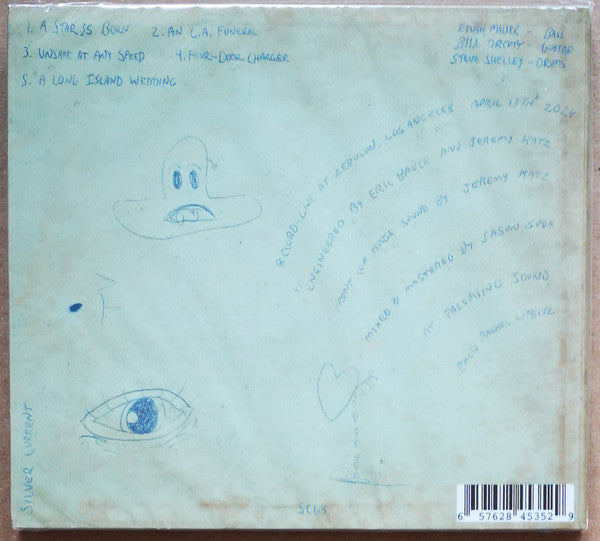 1. A STAR IS BORN 2. AN L.A. FUNERAL
3. UNSAFE AT ANY SPEED 4. FOUR-DOOR CHARGER
5. A LONG ISLAND WEDDING
ETHAN MILLER - BASS
BILL ORCUTT - GUITAR
STEVE SHELLEY - DRUMS
RECORD LIVE AT ZEBULON, LOS ANGELES APRIL 13TH 2024
ENGINEERED BY ERIC BAUER AND JEREMY KATZ
FRONT OF HOUSE SOUND BY JEREMY KATZ
MIXED & MASTERED BY JASON SODA
AT PALOMINO SOUND
PHOTO RACHEL
SILVER CURRENT
SC65
6 57628 45352 9